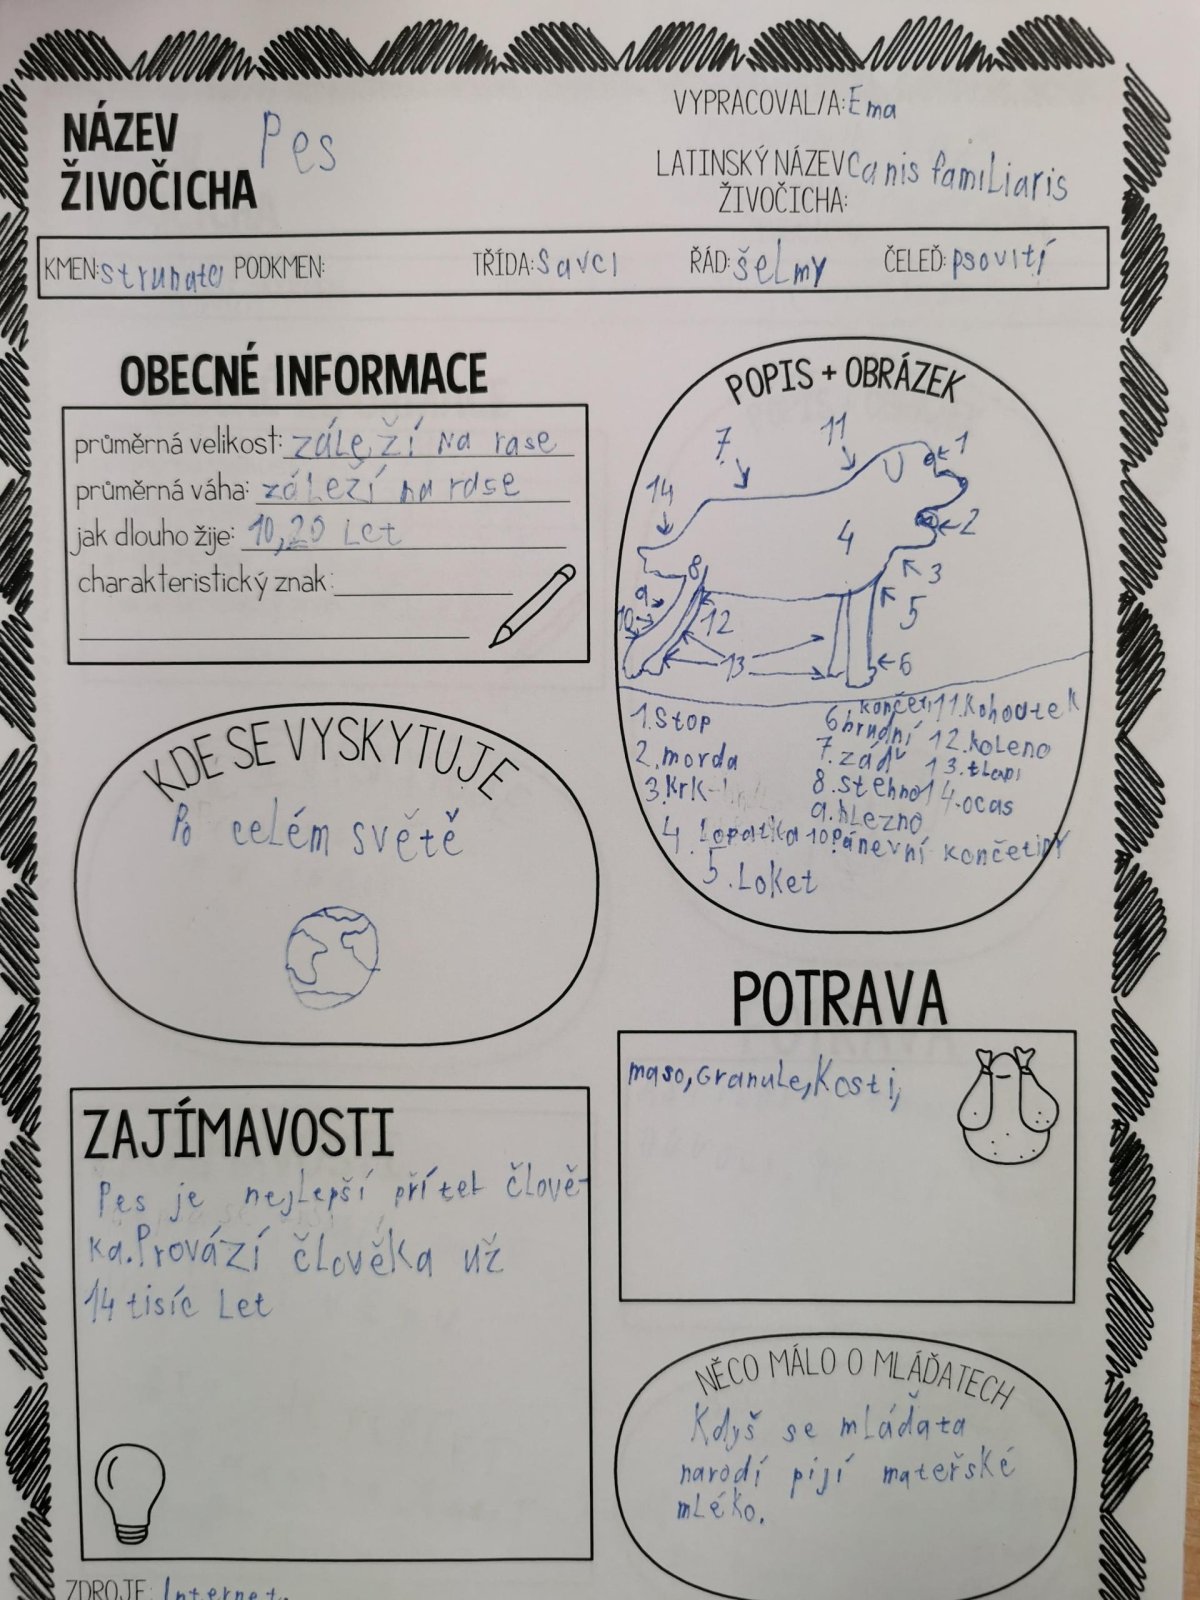 NÁZEV ŽIVOČICHA Pes
VYPRACOVAL/A: Ema
LATINSKÝ NÁZEV ŽIVOČICHA: Canis familiaris
KMEN: strunatci PODKMEN: TŘÍDA: savci ŘÁD: šelmy ČELEĎ: psovití
OBECNÉ INFORMACE
průměrná velikost: záleží na rase
průměrná váha: záleží na rase
jak dlouho žije: 10,20 let
charakteristický znak:
POPIS + OBRÁZEK
7 11 1
14
4 2
8 3
9 5
10 12
13 6
1. Stop
2. morda
3. Krk
4. Lopatka
5. Loket
6 hrudní končeti
7. záď
8. stehno
9. hlezno
10 Pánevní končetiny
11. Kohoutek
12. koleno
13. tlapi
14. ocas
KDE SE VYSKYTUJE
Po celém světě
POTRAVA
maso, Granule, Kosti,
ZAJÍMAVOSTI
Pes je nejlepší přítel člově-
ka. Provází člověka už
14 tisíc let
NĚCO MÁLO O MLÁĎATECH
Kdyš se mláďata
narodí pijí mateřské
mléko.
ZDROJE: Internet.